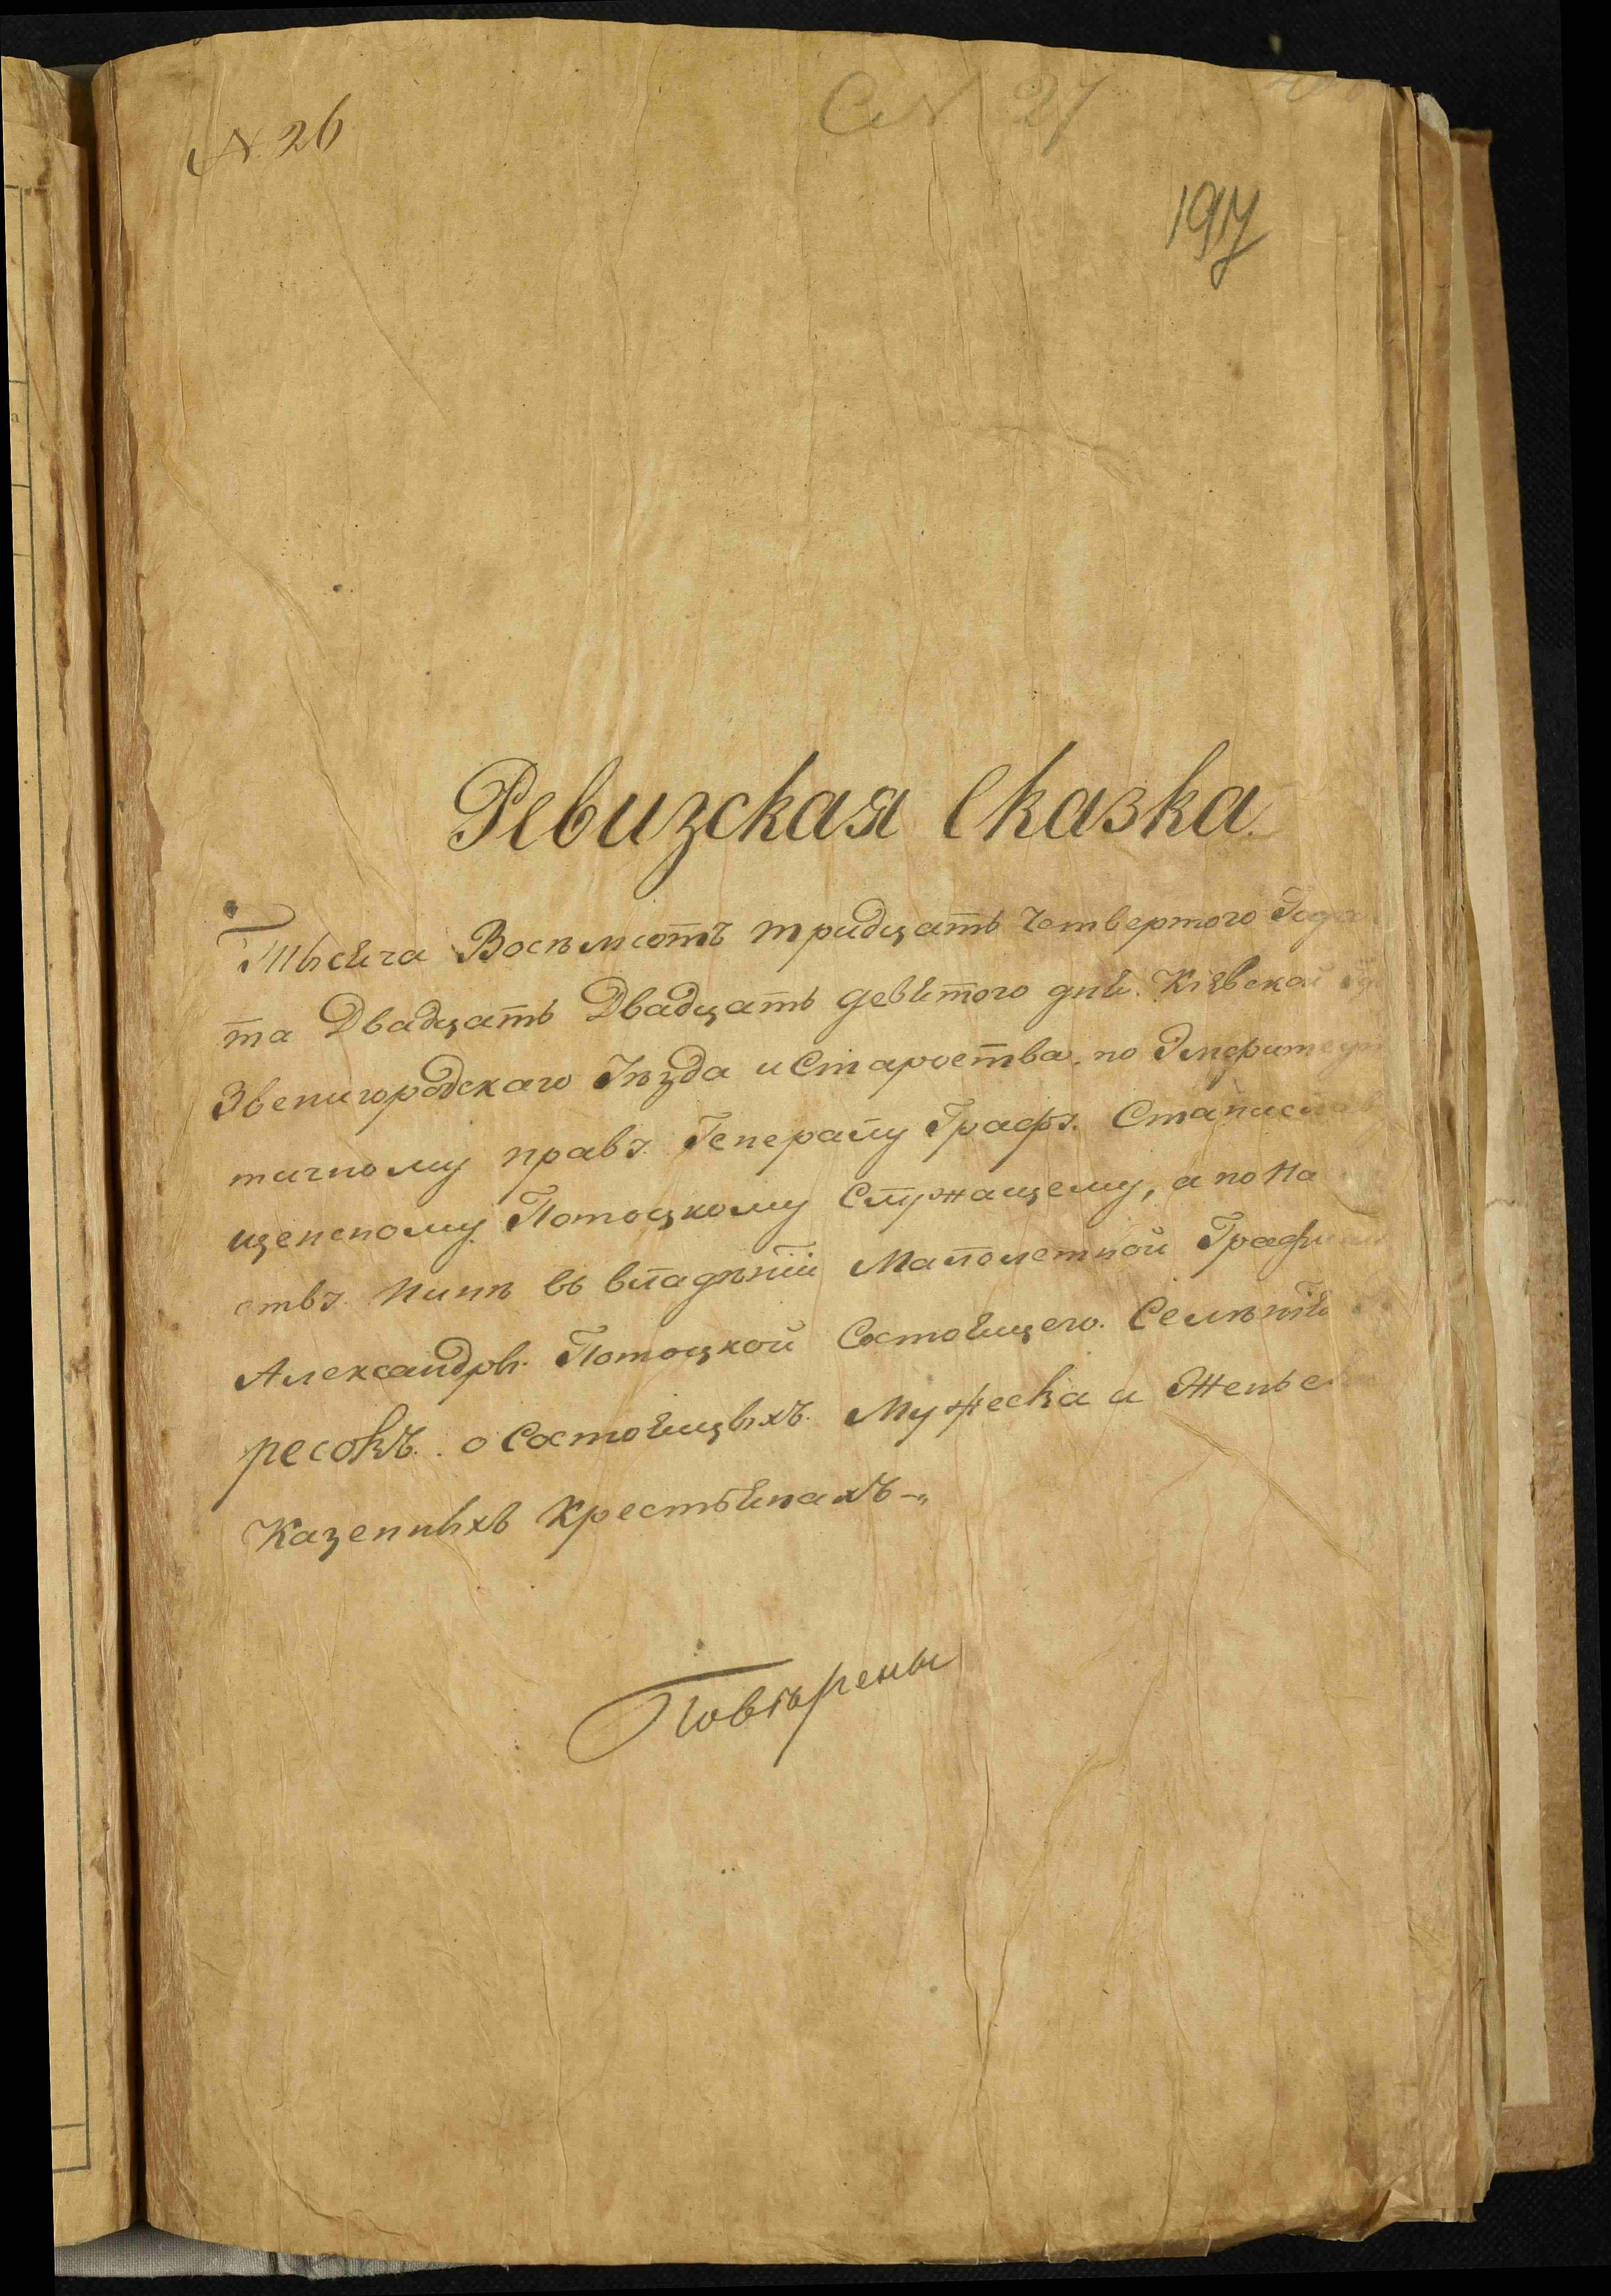 № 26
27
197
Ревизская Сказка.
Тысяча Восемсотъ тридцать Четвертого Года
та Двадцать Двадцать девятого дня. Кіевской
Звенигородскаго Уѣзда и Староства, по Эмфитеу
тичному правѣ. Генералу Графѣ. Станислав
щенсному Потоцкому Служащему, а по На
ствѣ Нинѣ въ владѣніи Малолетной Графини
Александры. Потоцкой Состоящего. Селѣнія
ресокъ. о Состоящыхъ. Мужеска и Женьс
Казенныхъ Крестьянахъ
Повѣрены